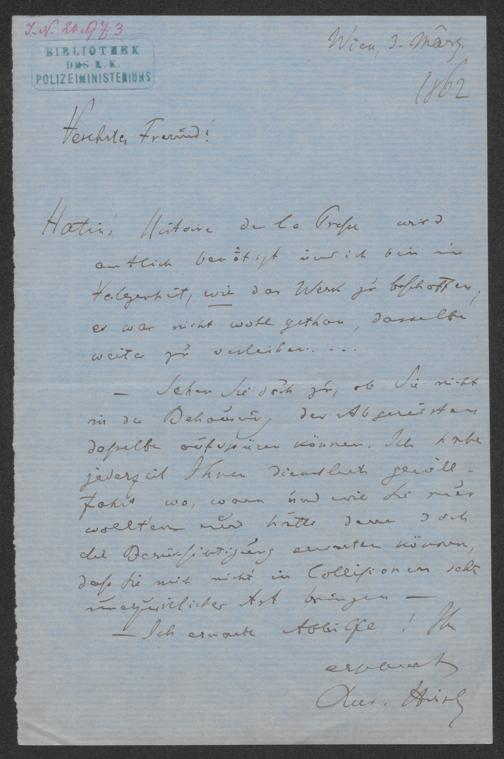 J.N. 20.973
BIBLIOTHEK
DES K. K.
POLIZEIMINISTERIUMS
Wien, 3. März
1862
Verehrter Freund!
Hatin's Histoire de la Presse wird
amtlich benötigt und ich bin in
Verlegenheit, wie das Werk zu beschaffen;
es war nicht wohl gethan, dasselbe
weiter zu verleihen....
— Sehen Sie doch zu, ob Sie nicht
in der Behausung des Abgereisten
dasselbe aufspüren können. Ich habe
jederzeit Ihnen dienstlich gewill-
fahrt wo, wann und wie Sie nur
wollten und hätte denn doch
die Berücksichtigung erwarten können,
daß Sie mich nicht in Collisionen sehr
unerquicklicher Art bringen —
— Ich erwarte Abhilfe! Ihr